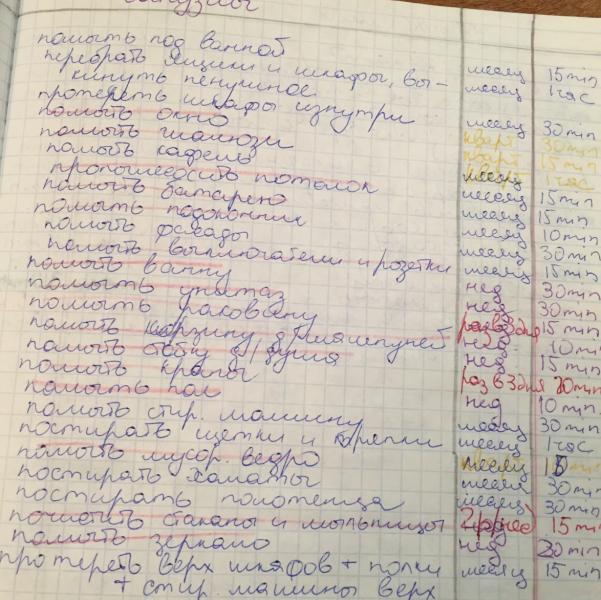 помыть под ванной месяц 15 min
перебрать ящики и шкафы, вы- месяц 1 час
кинуть ненужное
протереть шкафы изнутри месяц 30 min
помыть окно кварт 30 min
помыть жалюзи кварт 15 min
помыть кафель 1 час
пропылесосить потолок месяц 15 min
помыть батарею месяц 15 min
помыть подоконник месяц 10 min
помыть фасады месяц 30 min
помыть выключатели и розетки месяц 15 min
помыть ванну нед 30 min
помыть унитаз нед 30 min
помыть раковину раз в 3 дня 15 min
помыть корзину д/шампуней нед 10 min
помыть д/душа нед 15 min
помыть краны раз в 3 дня 20 min
помыть пол нед 10 min
помыть стир. машину месяц 30 min
постирать щетки и тряпки месяц 1 час
помыть мусор. ведро месяц 15
постирать халаты месяц 30 min
постирать полотенца месяц 30 min
почистить стаканы и мыльницы 15 min
помыть зеркало нед 20 min
протереть верх шкафов + полки месяц 15 min
+ стир. машины верх